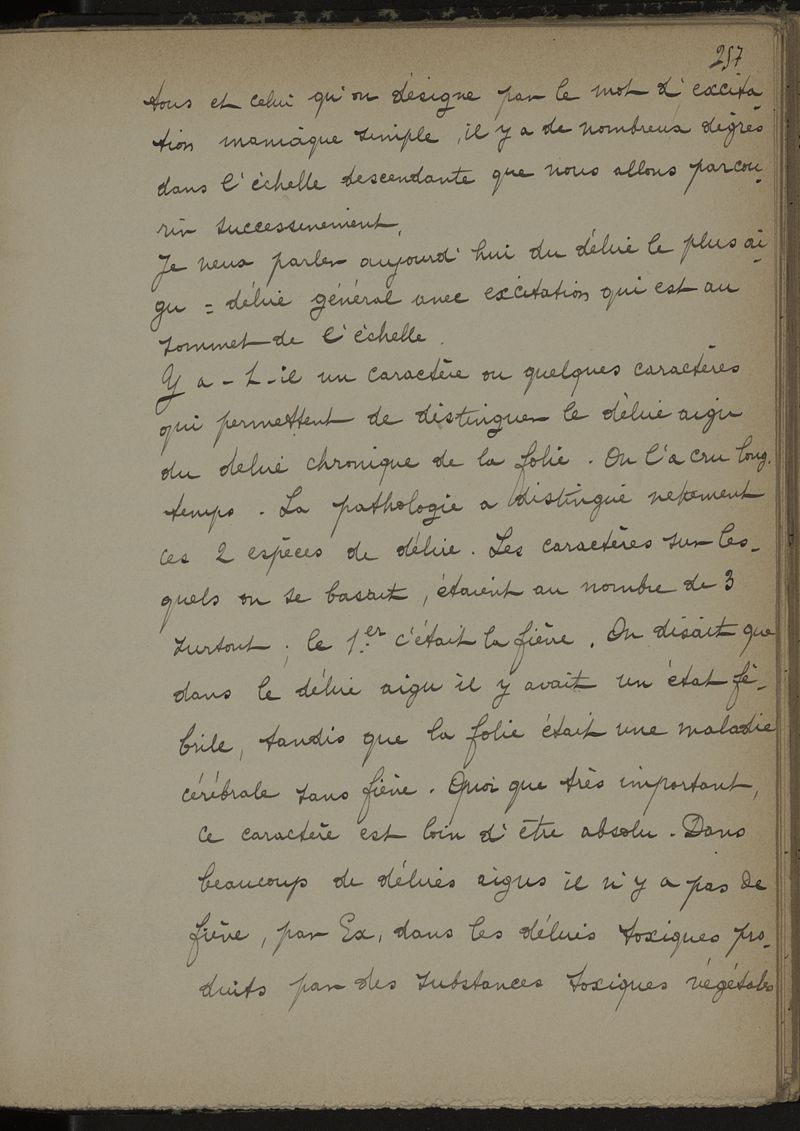 257
tous et celui qu'on désigne par le mot d'excita-
tion maniaque simple, il y a de nombreux degrés
dans l'échelle descendante que nous allons parcou-
rir successivement.
Je veux parler aujourd'hui du délire le plus ai-
gu = délire général avec excitation qui est au
sommet de l'échelle.
Y a-t-il un caractère ou quelques caractères
qui permettent de distinguer le délire aigu
du délire chronique de la folie. On l'a cru long-
temps. La pathologie a distingué nettement
ces 2 espèces de délire. Les caractères sur les-
quels on se basait, étaient au nombre de 3
surtout; le 1er c'était la fièvre. On disait que
dans le délire aigu il y avait un état fé-
brile, tandis que la folie était une maladie
cérébrale sans fièvre. Quoi que très important,
ce caractère est loin d'être absolu. Dans
beaucoup de délires aigus il n'y a pas de
fièvre, par Ex, dans les délires toxiques pro-
duits par des substances toxiques végétales